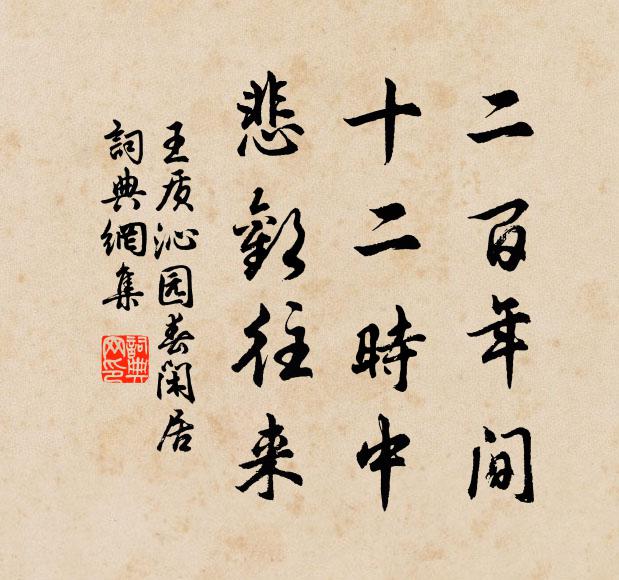 二百年间
十二時中
悲歡往来
王质沁园春闲居
詞典網集
詞典网印